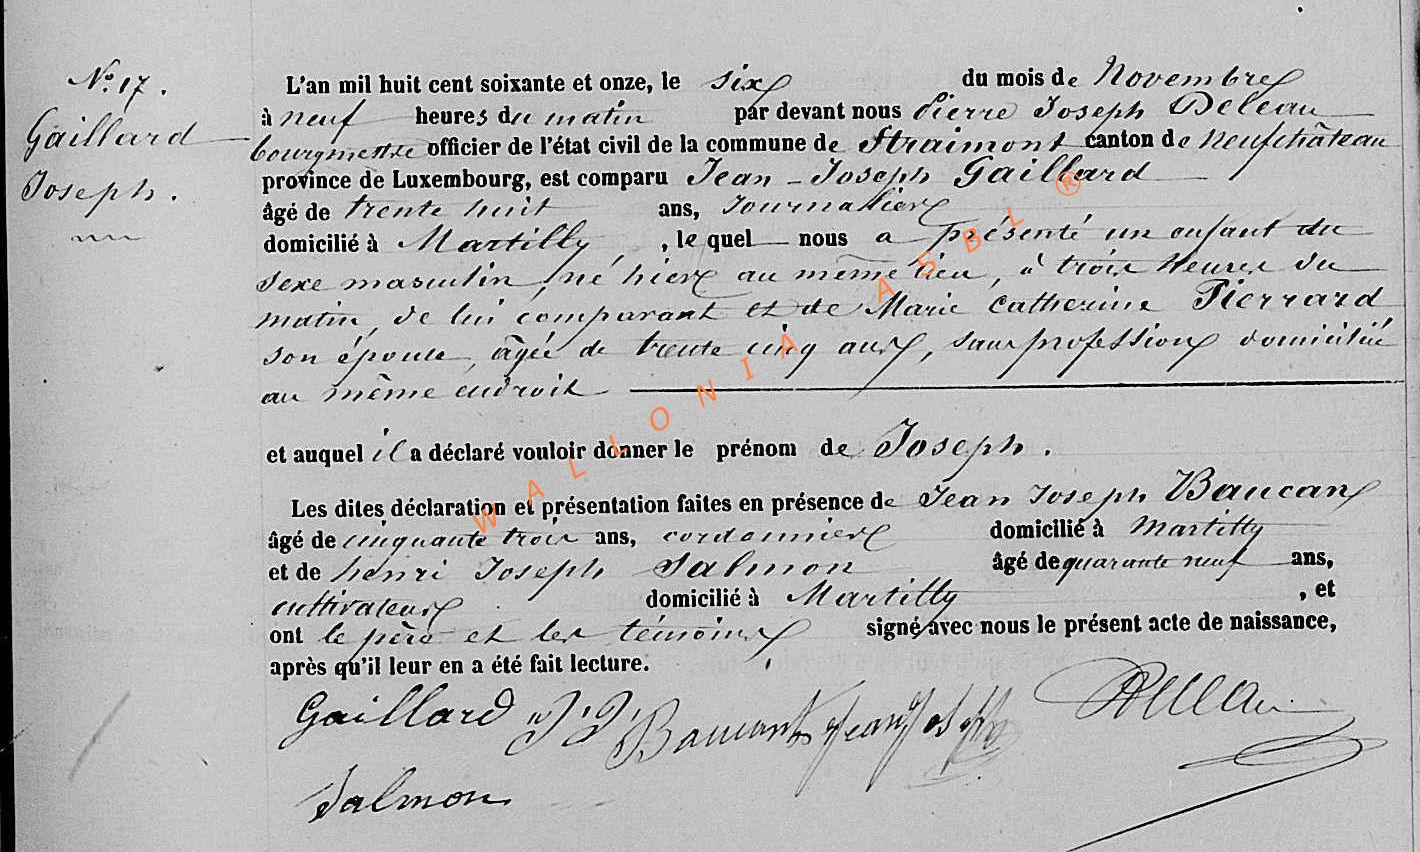 N.º 17.
Gaillard
Joseph.
L'an mil huit cent soixante et onze, le six du mois de Novembre
à neuf heures du matin par devant nous Pierre Joseph Deleau
bourgmestre officier de l'état civil de la commune de Straimont canton de Neufchâteau
province de Luxembourg, est comparu Jean-Joseph Gaillard
âgé de trente huit ans, Journalier
domicilié à Martilly, le quel nous a présenté un enfant du
sexe masculin, né hier au même lieu, à trois heures du
matin, de lui comparant et de Marie Catherine Pierrard
son épouse, âgée de trente cinq ans, sans profession domiciliée
au même endroit
et auquel il a déclaré vouloir donner le prénom de Joseph.
Les dites déclaration et présentation faites en présence de Jean Joseph Baucan
âgé de cinquante trois ans, cordonnier domicilié à Martilly
et de henri Joseph Salmon âgé de quarante neuf ans,
cultivateur domicilié à Martilly, et
ont le père et les témoins signé avec nous le présent acte de naissance,
après qu'il leur en a été fait lecture.
Gaillard J J Baucant jean Joseph Deleau
Salmon
WALLONIA ASBL ®